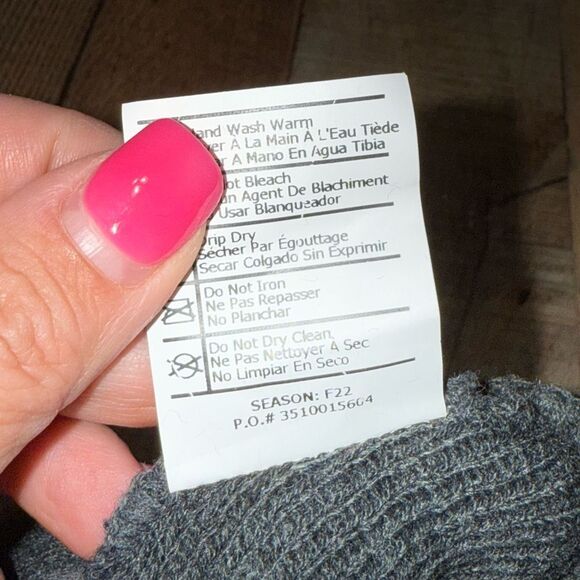 and Wash Warm
er À La Main À L'Eau Tiède
r A Mano En Agua Tibia
ot Bleach
un Agent De Blachiment
Usar Blanqueador
Drip Dry
Sécher Par Égouttage
Secar Colgado Sin Exprimir
Do Not Iron
Ne Pas Repasser
No Planchar
Do Not Dry Clean
Ne Pas Nettoyer À Sec
No Limpiar En Seco
SEASON: F22
P.O.# 3510015604